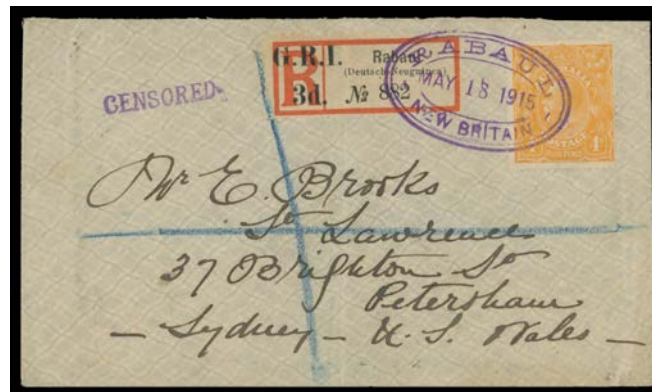 CENSORED
G.R.I. Rabaul
(Deutsch-Neuguinea)
R 3d. № 882
RABAUL
MAY 18 1915
NEW BRITAIN
POSTAGE
Mr E. Brooks
St Lawrence
37 Brighton St
Petersham
— Sydney — N. S. Wales —